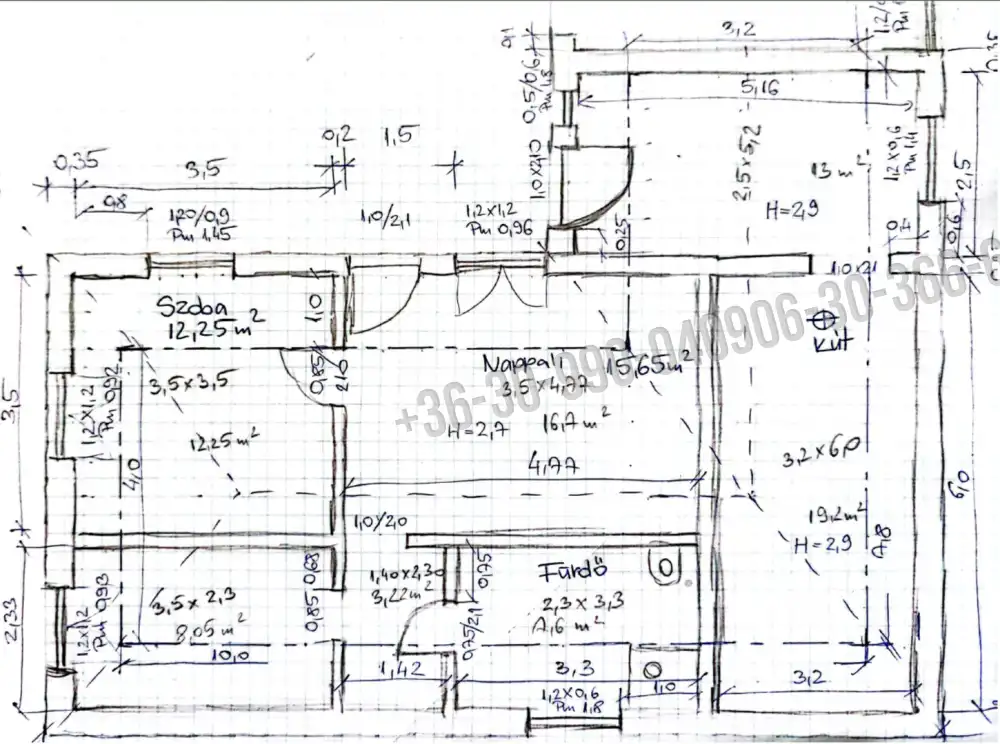 3,2
1,2/0
0,1
0,5/0,6
Pm 1,8
5,16
2,5 x 5,2
1,2 x 0,6
Pm 1,4
0,35
0,2
1,5
3,5
1,0x2,10
13 m²
2,5
0,8
120/0,9
Pm 1.45
1,0/2,1
1,2x1,2
Pm 0,96
H=2,9
0,25
0,4
0,6
1,0x2,1
Szoba
12,25 m²
1,0
kút
3,5
1,2 x 1,2
Pm 0,92
3,5 x 3,5
0,85
2,10
Nappali
15,65 m²
3,5 x 4,77
+36-30-990-0409
06-30-366-0
12,25 m²
H=2,7
16,7 m²
4,0
4,77
3,2 x 6,0
6,0
19,2 m²
H=2,9
1,0/2,0
2,33
1,2x1,2
Pm 0,93
3,5 x 2,3
8,05 m²
0,68
0,85
1,40 x 2,30
3,22 m²
0,75
Fürdő
2,3 x 3,3
0,75/2,1
10,0
1,42
3,3
3,2
1,2 x 0,6
Pm 1,8
1,0